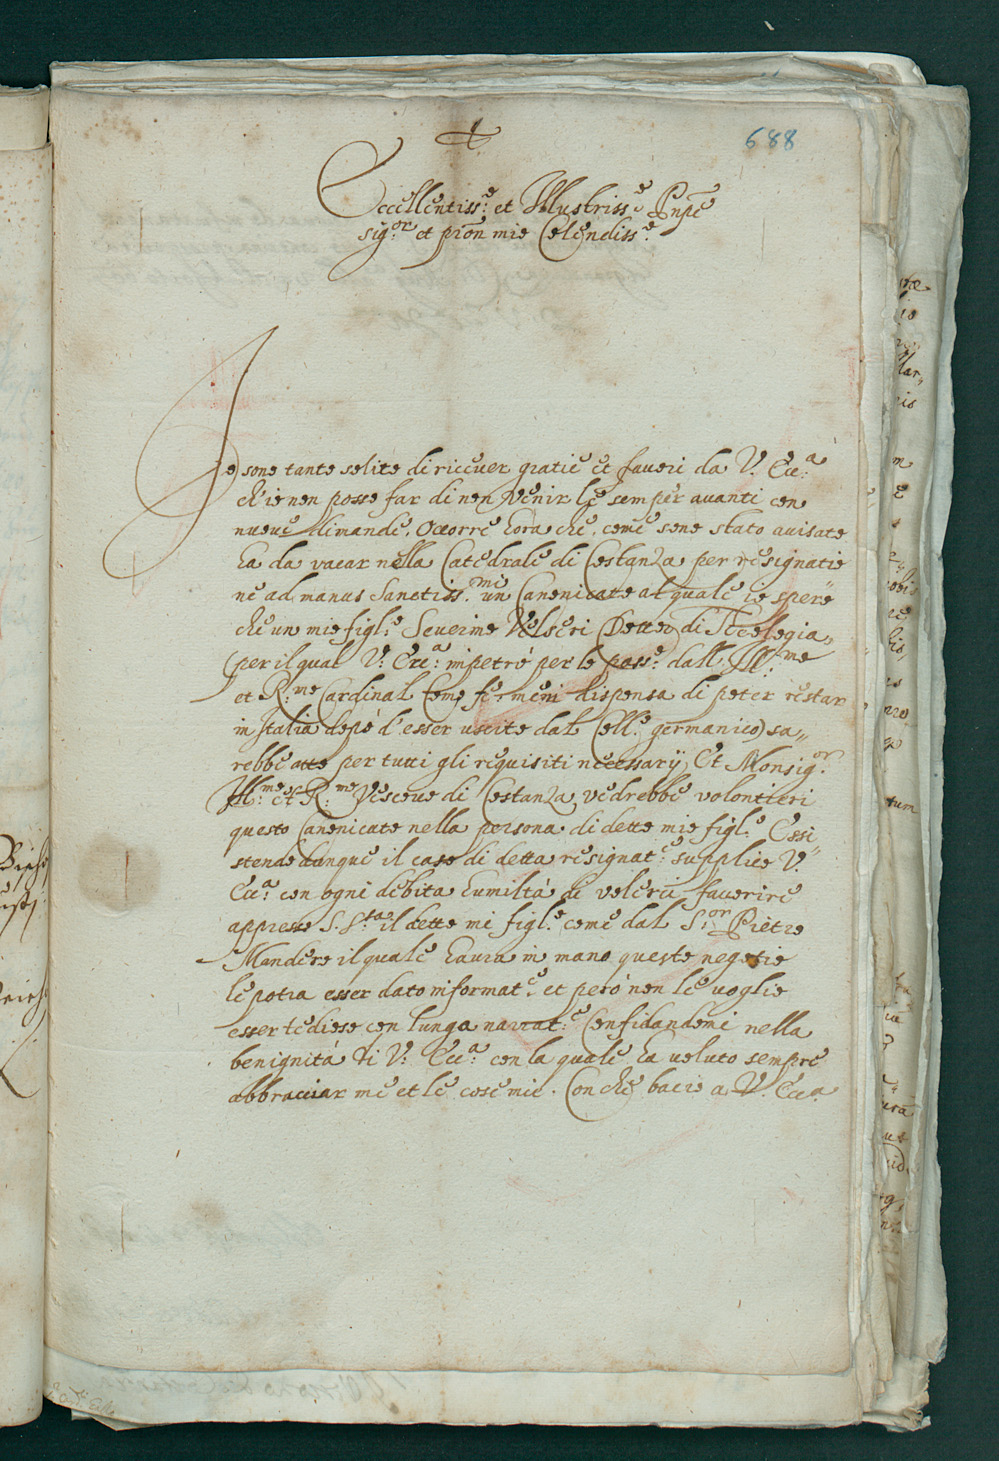 688
Eccellentiss:e et Illustriss:e Pnpe
sig:or et pron mio Colendiss:e
Io sono tanto solito di riceuer gratie et fauori da V. Ecc:a
ch'io non posso far di non venir le sempre auanti con
nuoue dimande. Occorre hora che, come sono stato auisato
ha da vacar nella Catedrale di Costanza per resignatio
ne ad manus Sanctiss:me un Canonicato al quale io spero
che un mio figl:o Seuerino Velseri Dottor di Teologia,
(per il qual V: Ecc:a impetró per lo pass:o dall Ill:mo
et R:mo Cardinal Como fe: me: dispensa di poter restar
in Italia dopó d'esser uscito dal Coll:o germanico) sa„
rebbe atto per tutti gli requisiti necessarij, Et Monsig:or
Ill:mo et R:mo Vescouo di Costanza, vedrebbe volontieri
questo Canonicato nella persona di detto mio figl:o Essi„
stendo dunque il caso di detta resignat:e supplico V:
Ecc:a con ogni debita humiltà di volerci fauorire
appresso S. S:ta il detto mi figl:o come dal S:or Pietro
Mandero il quale haura in mano questo negotio
le potra esser dato informat:e et peró non le uoglio
esser tedioso con lunga narrat:e Confidandomi nella
benignitá di V: Ecc:a con la quale ha uoluto sempre
abbracciar me et le cose mie. Con che bacio a V. Ecc:a